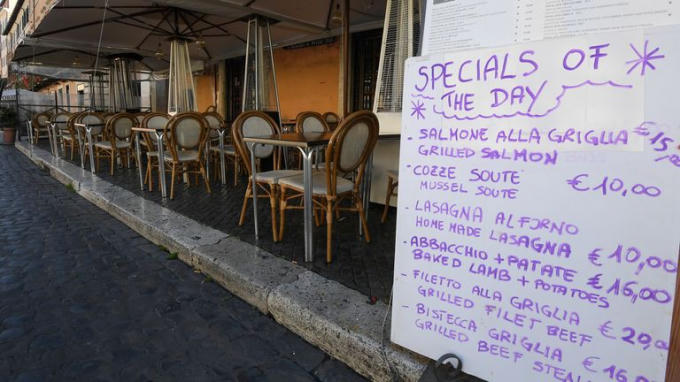 SPECIALS OF
THE DAY
- SALMONE ALLA GRIGLIA €15,
GRILLED SALMON
- COZZE SOUTE €10,00
MUSSEL SOUTE
- LASAGNA AL FORNO
HOME MADE LASAGNA €10,00
- ABBACCHIO + PATATE
BAKED LAMB + POTATOES €16,00
- FILETTO ALLA GRIGLIA
GRILLED FILET BEEF €29,00
- BISTECCA GRIGLIA
GRILLED BEEF €16,